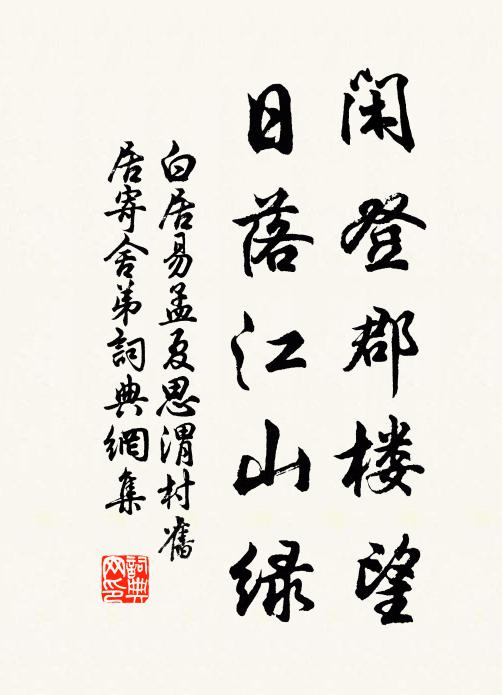 闲登郡楼望
日落江山绿
白居易孟夏思渭村舊
居寄舍弟詞典網集
詞典
网印